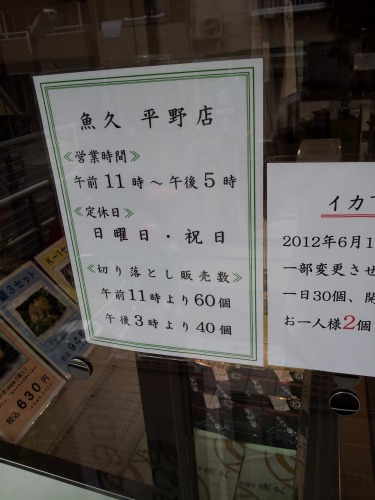 魚久 平野店
≪営業時間≫
午前11時～午後5時
≪定休日≫
日曜日・祝日
≪切り落とし販売数≫
午前11時より60個
午後3時より40個
イカ
2012年6月1
一部変更させ
一日30個、開
お一人様2個
K-1セット
3セット
税込 630円